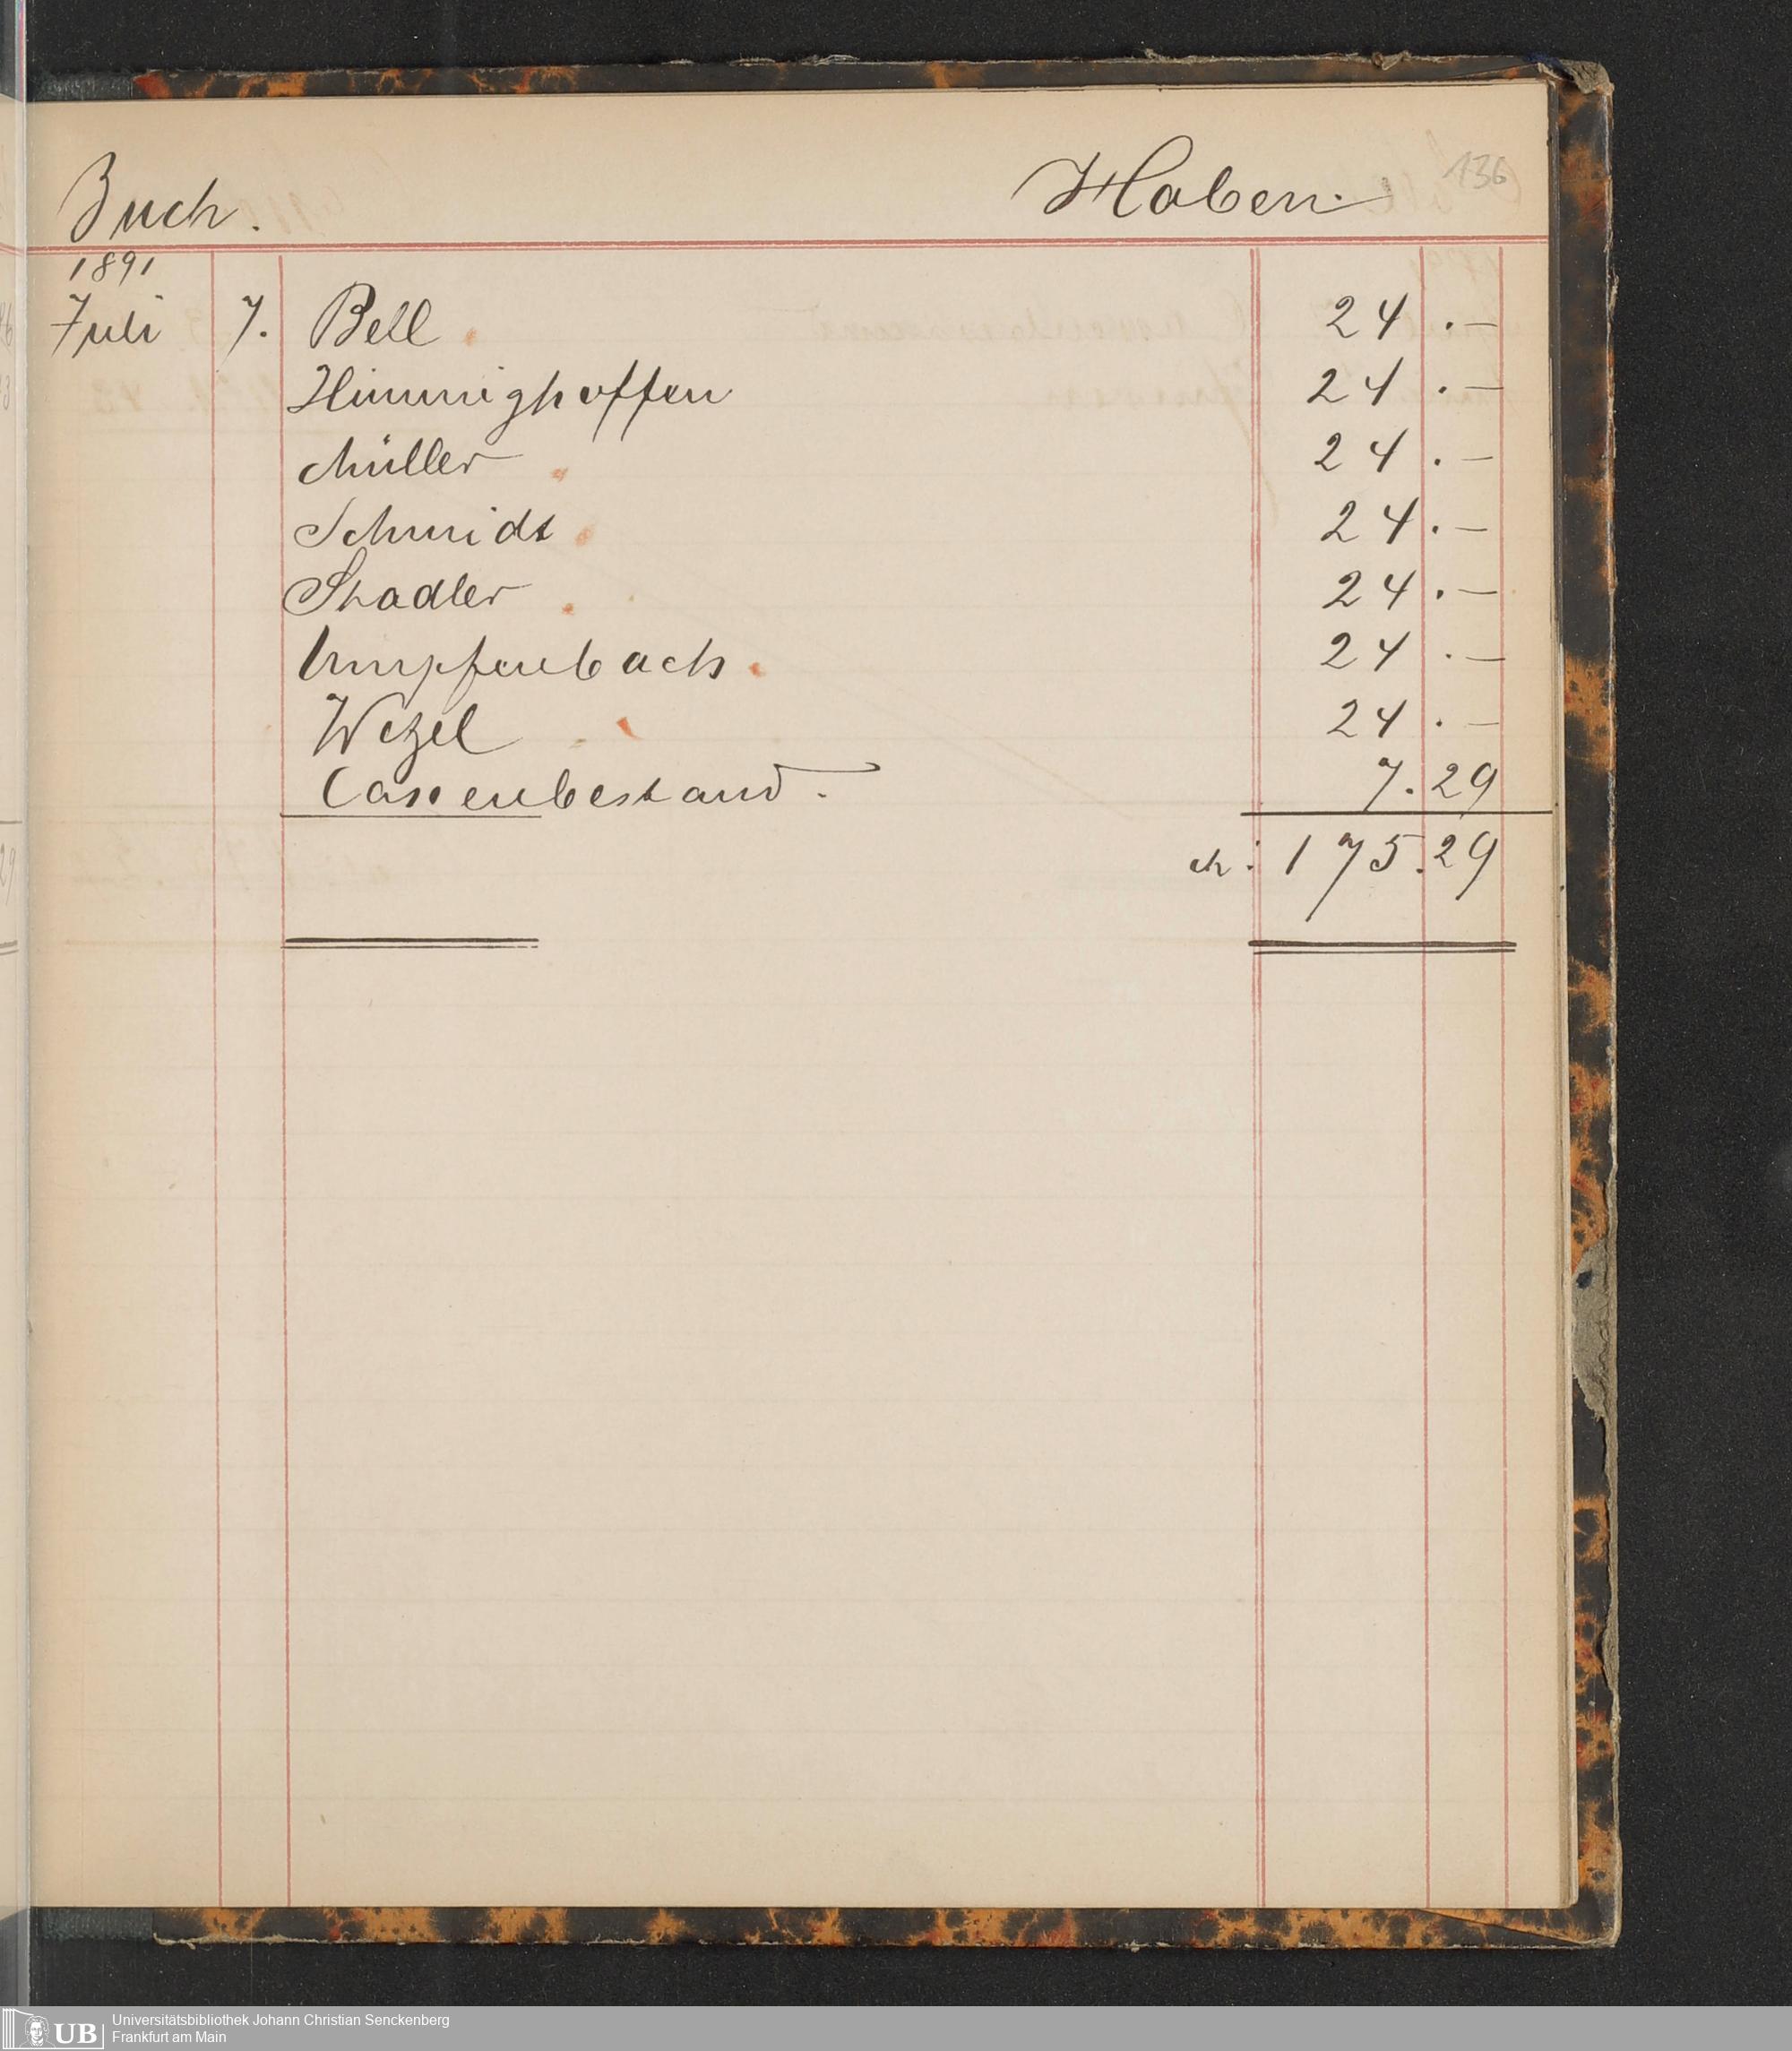 Buch. Haben. 136
1891
Juli 7. Bell 24.—
Himmighoffen 24.—
Müller 24.—
Schmidt 24.—
Stadler 24.—
Umpfenbach. 24.—
Wetzel 24.—
Cassenbestand. 7.29
M: 175.29
UB Universitätsbibliothek Johann Christian Senckenberg
Frankfurt am Main